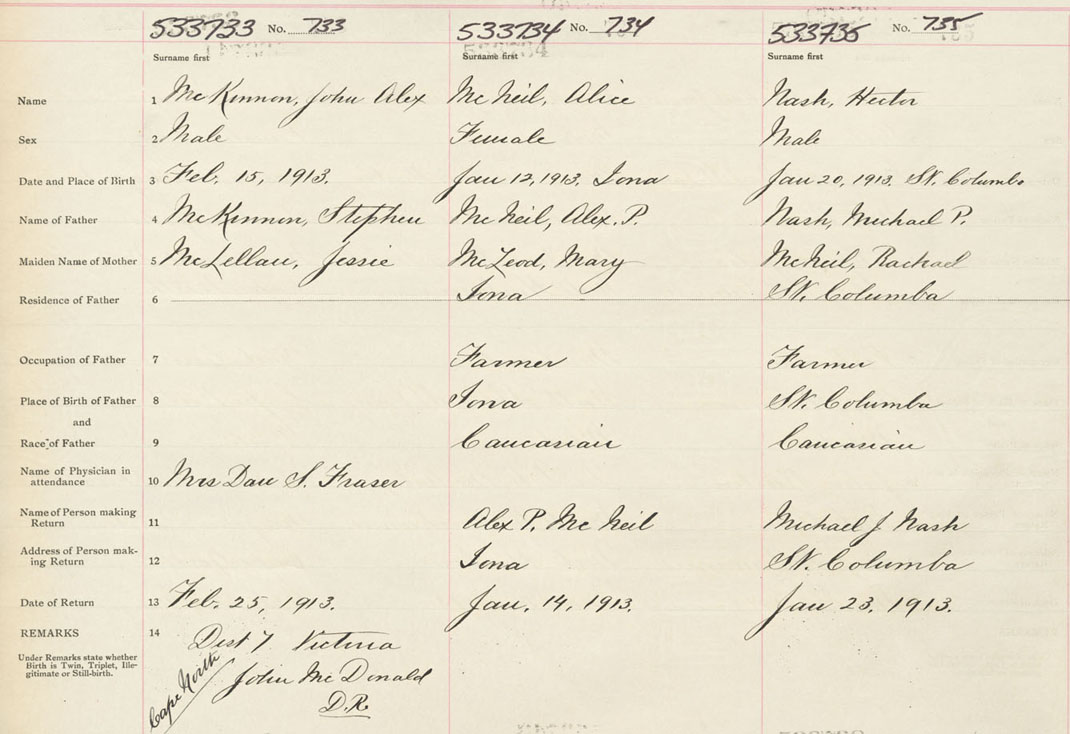 533733 No. 733 533734 No. 734 533735 No. 735
Surname first Surname first Surname first
Name 1 McKinnon, John Alex McNeil, Alice Nash, Hector
Sex 2 Male Female Male
Date and Place of Birth 3 Feb. 15, 1913. Jan 12, 1913, Iona Jan 20, 1913. St. Columba
Name of Father 4 McKinnon, Stephen McNeil, Alex. P. Nash, Michael P.
Maiden Name of Mother 5 McLellan, Jessie McLeod, Mary McNeil, Rachael
Residence of Father 6 Iona St. Columba
Occupation of Father 7 Farmer Farmer
Place of Birth of Father 8 Iona St. Columba
and
Race of Father 9 Caucasian Caucasian
Name of Physician in
attendance 10 Mrs Dan S. Fraser
Name of Person making
Return 11 Alex P. McNeil Michael J Nash
Address of Person mak-
ing Return 12 Iona St. Columba
Date of Return 13 Feb. 25, 1913. Jan. 14, 1913. Jan 23, 1913.
REMARKS 14 Dist 7 Victoria
Under Remarks state whether
Birth is Twin, Triplet, Ille-
gitimate or Still-birth.
Cape North
John McDonald
D.R.